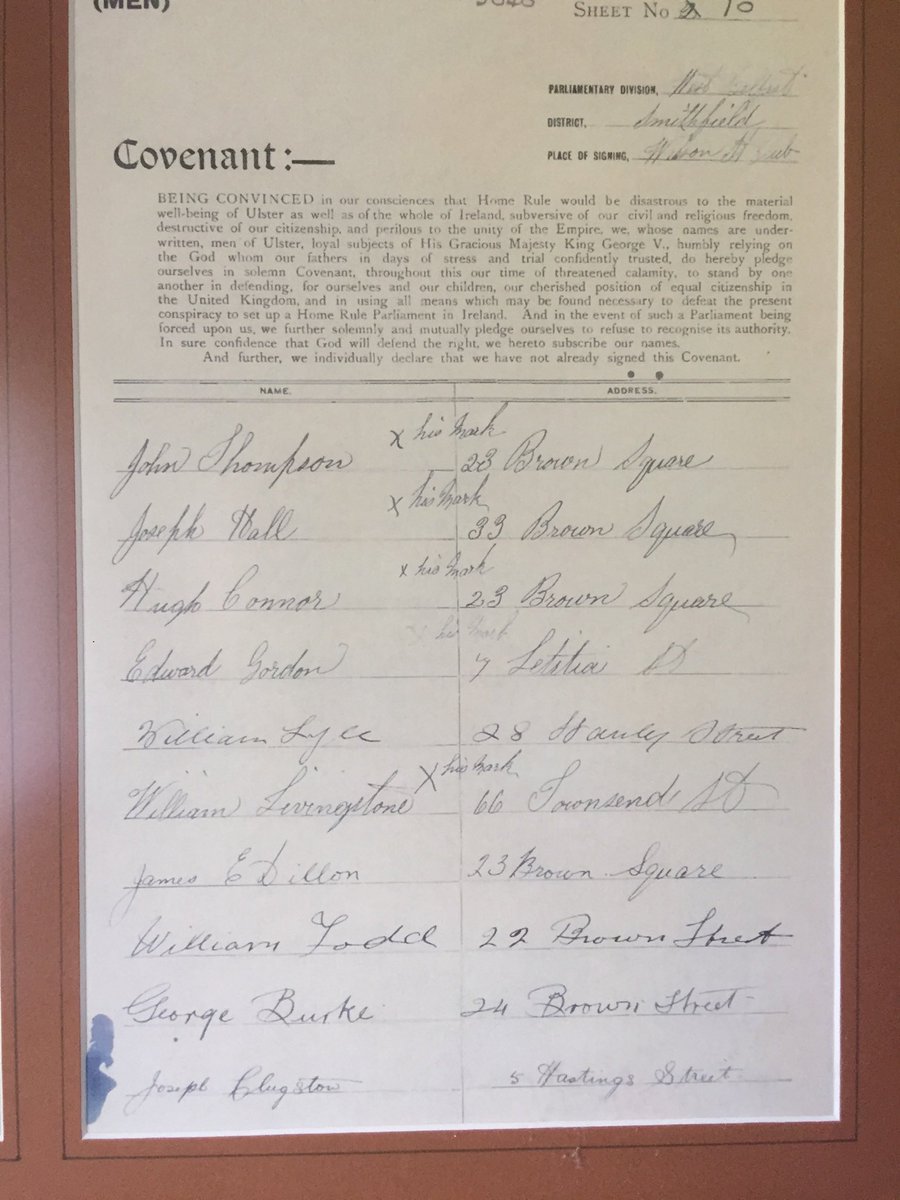 (MEN)
SHEET No 10
PARLIAMENTARY DIVISION, West Belfast
DISTRICT, Smithfield
PLACE OF SIGNING, Wilson St
Covenant:—
BEING CONVINCED in our consciences that Home Rule would be disastrous to the material
well-being of Ulster as well as of the whole of Ireland, subversive of our civil and religious freedom,
destructive of our citizenship, and perilous to the unity of the Empire, we, whose names are under-
written, men of Ulster, loyal subjects of His Gracious Majesty King George V., humbly relying on
the God whom our fathers in days of stress and trial confidently trusted, do hereby pledge
ourselves in solemn Covenant, throughout this our time of threatened calamity, to stand by one
another in defending, for ourselves and our children, our cherished position of equal citizenship in
the United Kingdom, and in using all means which may be found necessary to defeat the present
conspiracy to set up a Home Rule Parliament in Ireland. And in the event of such a Parliament being
forced upon us, we further solemnly and mutually pledge ourselves to refuse to recognise its authority.
In sure confidence that God will defend the right, we hereto subscribe our names.
And further, we individually declare that we have not already signed this Covenant.
NAME. ADDRESS.
x his mark
John Thompson 23 Brown Square
x his mark
Joseph Hall 33 Brown Square
x his mark
Hugh Connor 23 Brown Square
x his mark
Edward Gordon 7 Letitia St
William Lyle 28 Stanly Street
x his mark
William Livingstone 66 Townsend St
James E Dillon 23 Brown Square
William Todd 22 Brown Street
George Burke 24 Brown Street
Joseph Clugston 5 Hastings Street